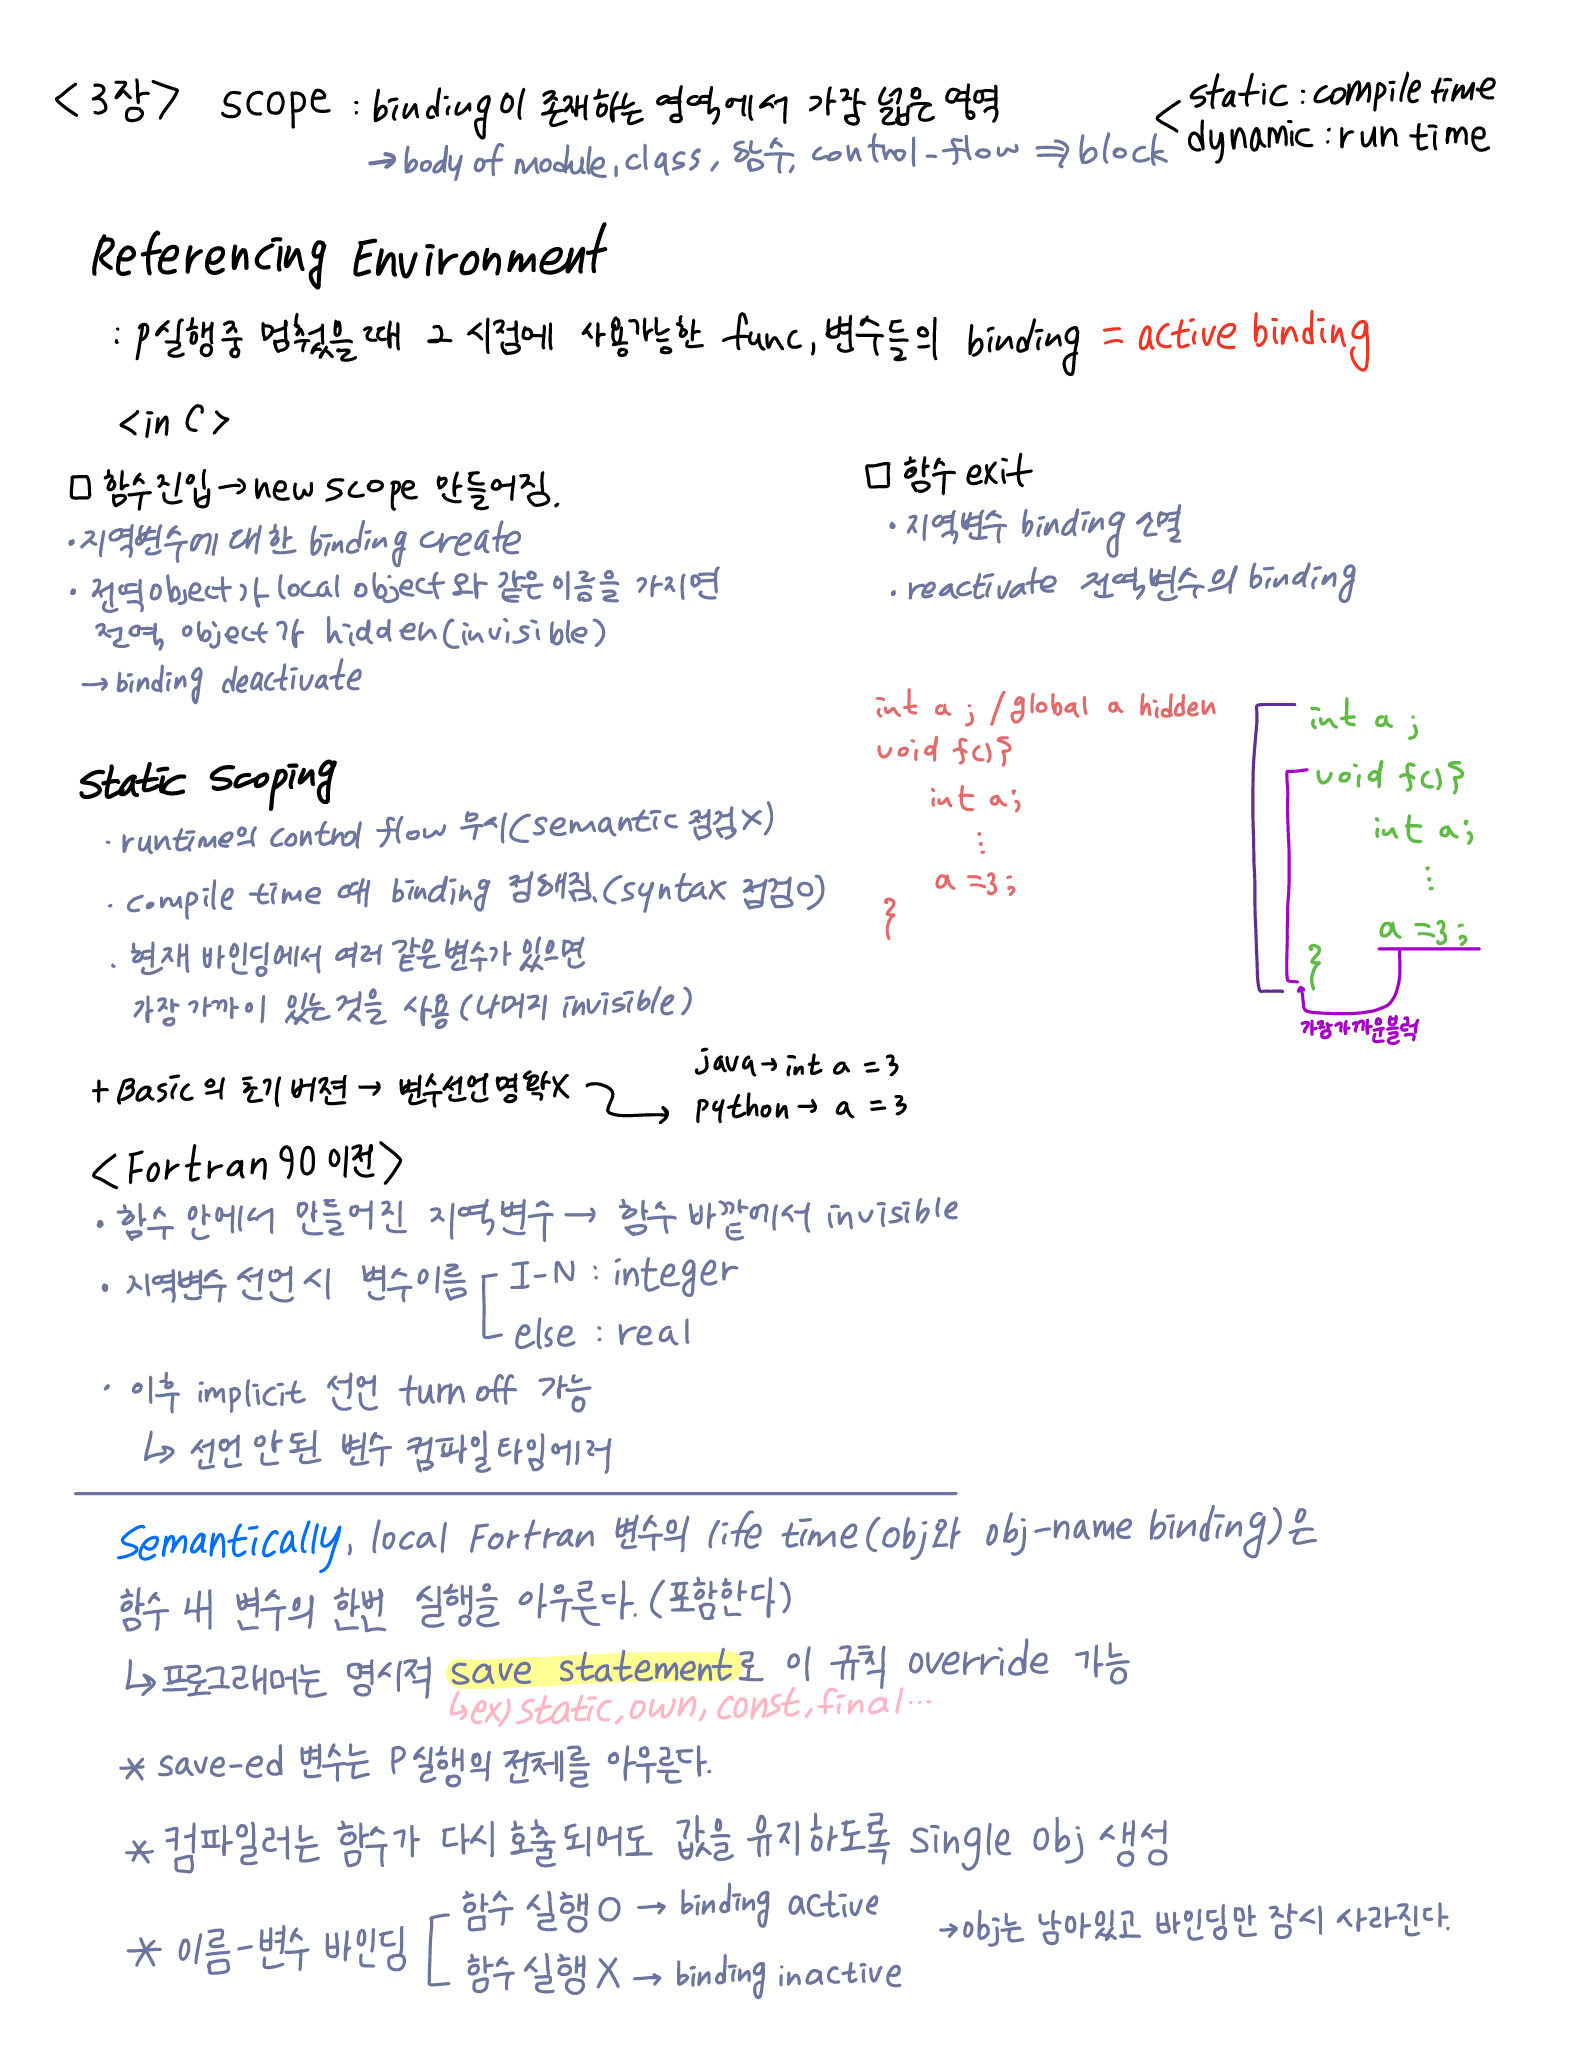 <3장> scope : binding이 존재하는 영역에서 가장 넓은 영역
< static : compile time
dynamic : run time
→ body of module, class, 함수, control-flow ⇒ block
Referencing Environment
: p실행중 멈췄을때 그 시점에 사용가능한 func, 변수들의 binding = active binding
<in C>
□ 함수진입 → new scope 만들어짐.
· 지역변수에 대한 binding create
· 전역object가 local object와 같은이름을 가지면
전역 object가 hidden(invisible)
→ binding deactivate
□ 함수 exit
· 지역변수 binding 소멸
· reactivate 전역변수의 binding
int a ; / global a hidden
void f() }
int a;
⋮
a = 3 ;
}
int a ;
void f() }
int a;
⋮
a = 3 ;
}
가장가까운블럭
Static Scoping
· runtime의 control flow 무시(semantic 점검X)
· compile time 때 binding 정해짐.(syntax 점검O)
· 현재 바인딩에서 여러 같은변수가 있으면
가장 가까이 있는 것을 사용 (나머지 invisible)
+ Basic의 초기버젼 → 변수선언명확X
java → int a = 3
python → a = 3
<Fortran 90 이전>
· 함수 안에서 만들어진 지역변수 → 함수 바깥에서 invisible
· 지역변수 선언 시 변수이름 I-N : integer
else : real
· 이후 implicit 선언 turn off 가능
↳ 선언 안 된 변수 컴파일타임에러
Semantically, local Fortran 변수의 life time(obj와 obj-name binding)은
함수 내 변수의 한번 실행을 아우른다. (포함한다)
↳ 프로그래머는 명시적 save statement로 이 규칙 override 가능
↳ex) static, own, const, final ⋯
* save-ed 변수는 P실행의 전체를 아우른다.
* 컴파일러는 함수가 다시 호출되어도 값을 유지하도록 single obj 생성
* 이름-변수 바인딩 함수 실행 O → binding active
함수 실행 X → binding inactive
→ obj는 남아있고 바인딩만 잠시 사라진다.